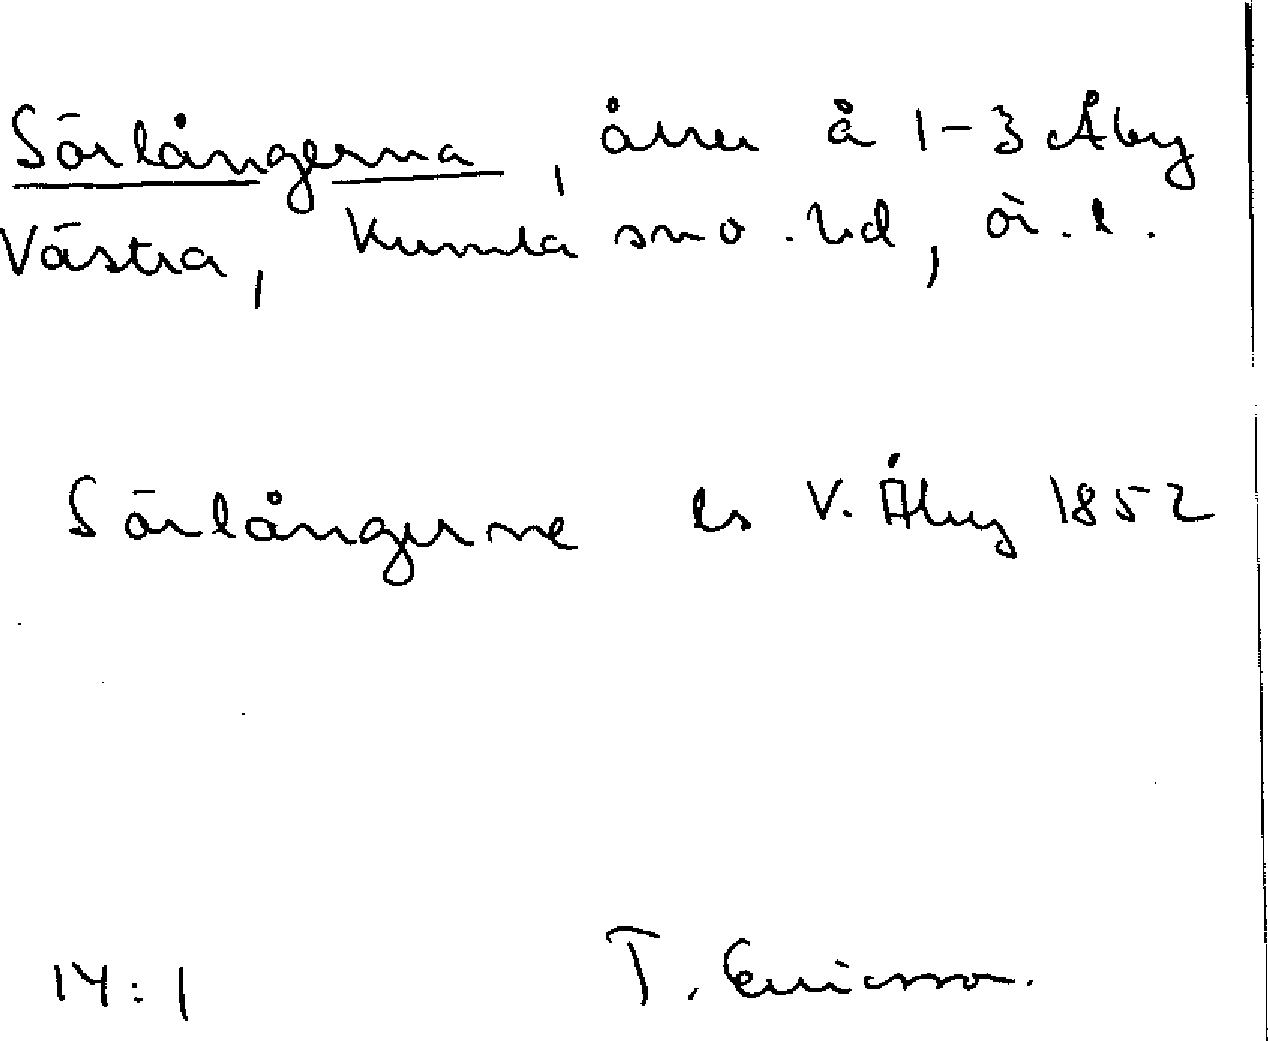 Sörlångerna, åkrar å 1-3 Åby
Västra, Kumla sn o. hd, ö. l.
Sörlångerne ls V. Åby 1852
14:1 T. Ericsson.